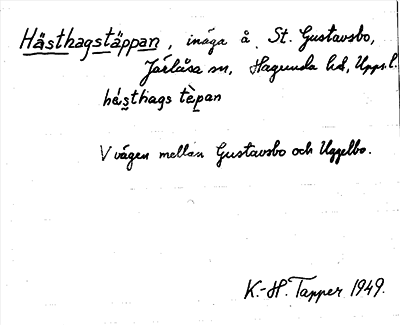 Hästhagstäppan, inäga å St. Gustavsbo,
Järlåsa sn, Hagunda hd, Upps. l.
hɛ́sthags tɛ̀pan
V vägen mellan Gustavsbo och Uggelbo.
K.-H. Tapper 1949.